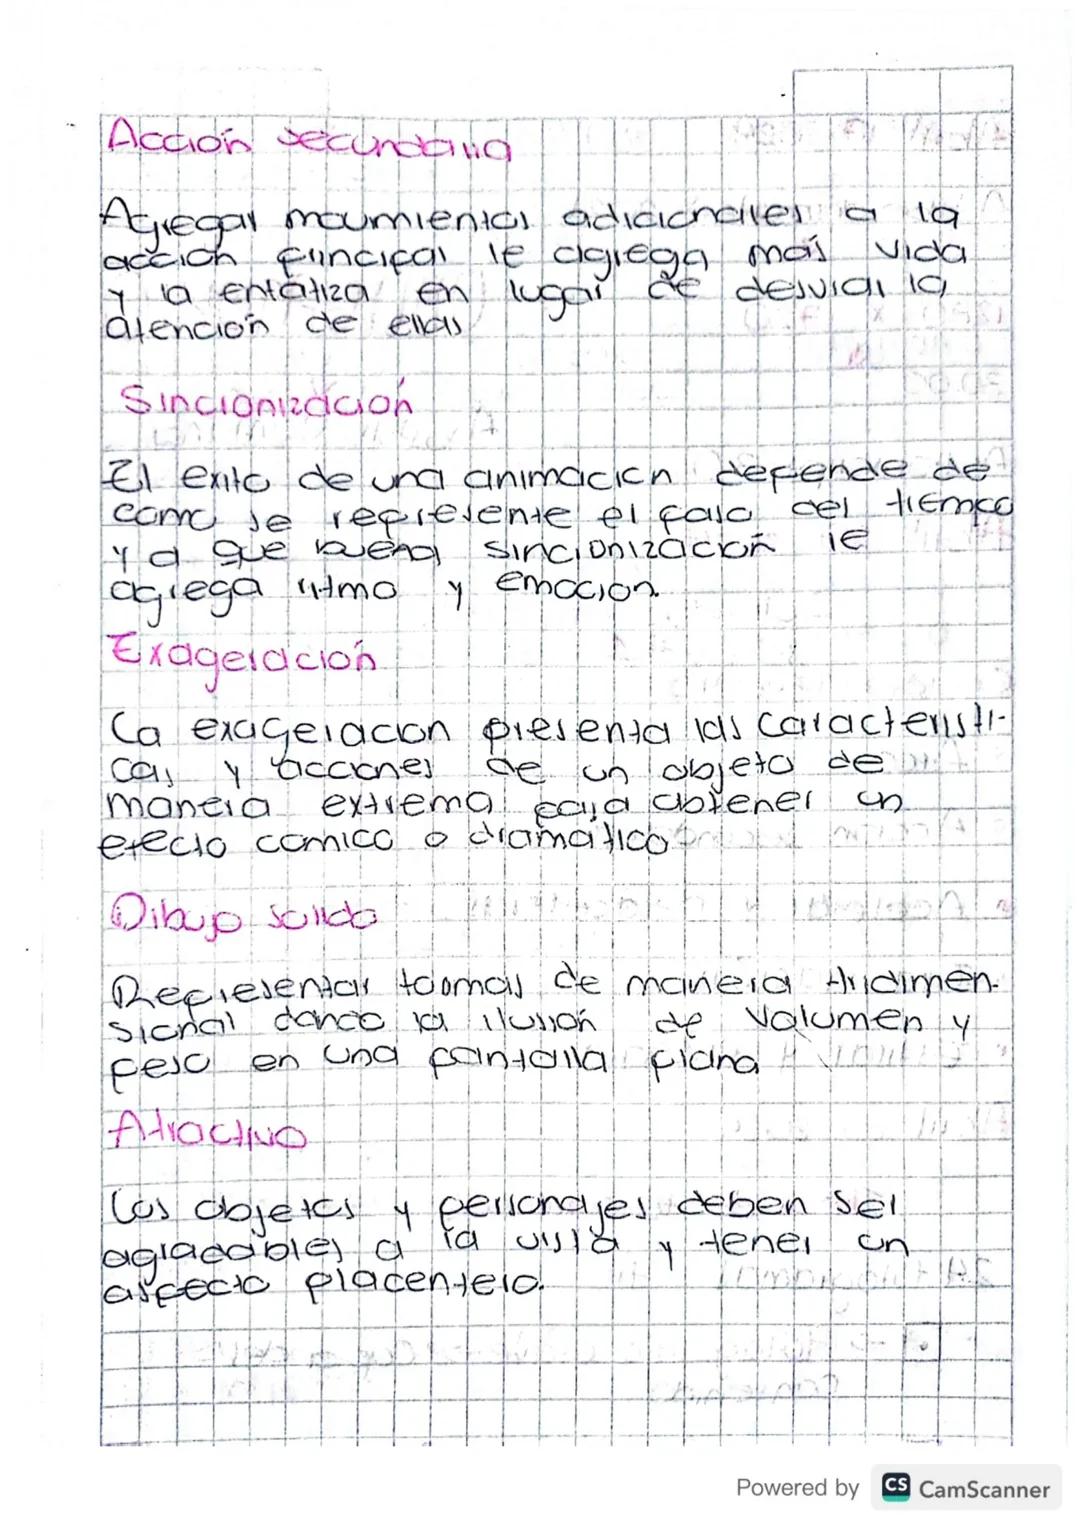 Acción secundaria
Agregar movimientos adicionales a la
acción principal le agrega más vida
y la enfátiza en lugar de desviar la
atención de ellas
Sincronización
El exito de una animación depende de
como se represente el paso del tiempo
y a que buena sincronización le
agrega ritmo y emoción.
Exageración
La exageracion presenta las caracteristi-
cas y acciones de un objeto de
manera extrema para obtener un
efecto comico o dramático
Dibujo solido
Representar foormas de manera tridimen-
sional dando la ilusión de volumen y
peso en una pantalla plana
Atractivo
Los objetos y personajes deben ser
agradables a la vista y tener un
aspecto placentero.
Powered by CS CamScanner